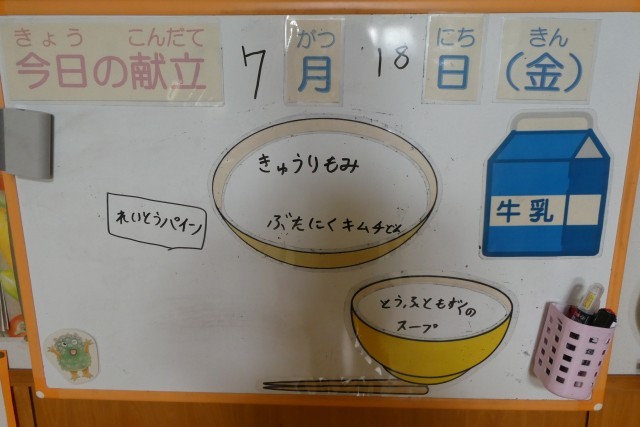 きょう こんだて
今日の献立
7 月 18 日 (金)
がつ にち きん
きゅうりもみ
ぶたにくキムチどん
れいとうパイン
牛乳
とうふともずくの
スープ